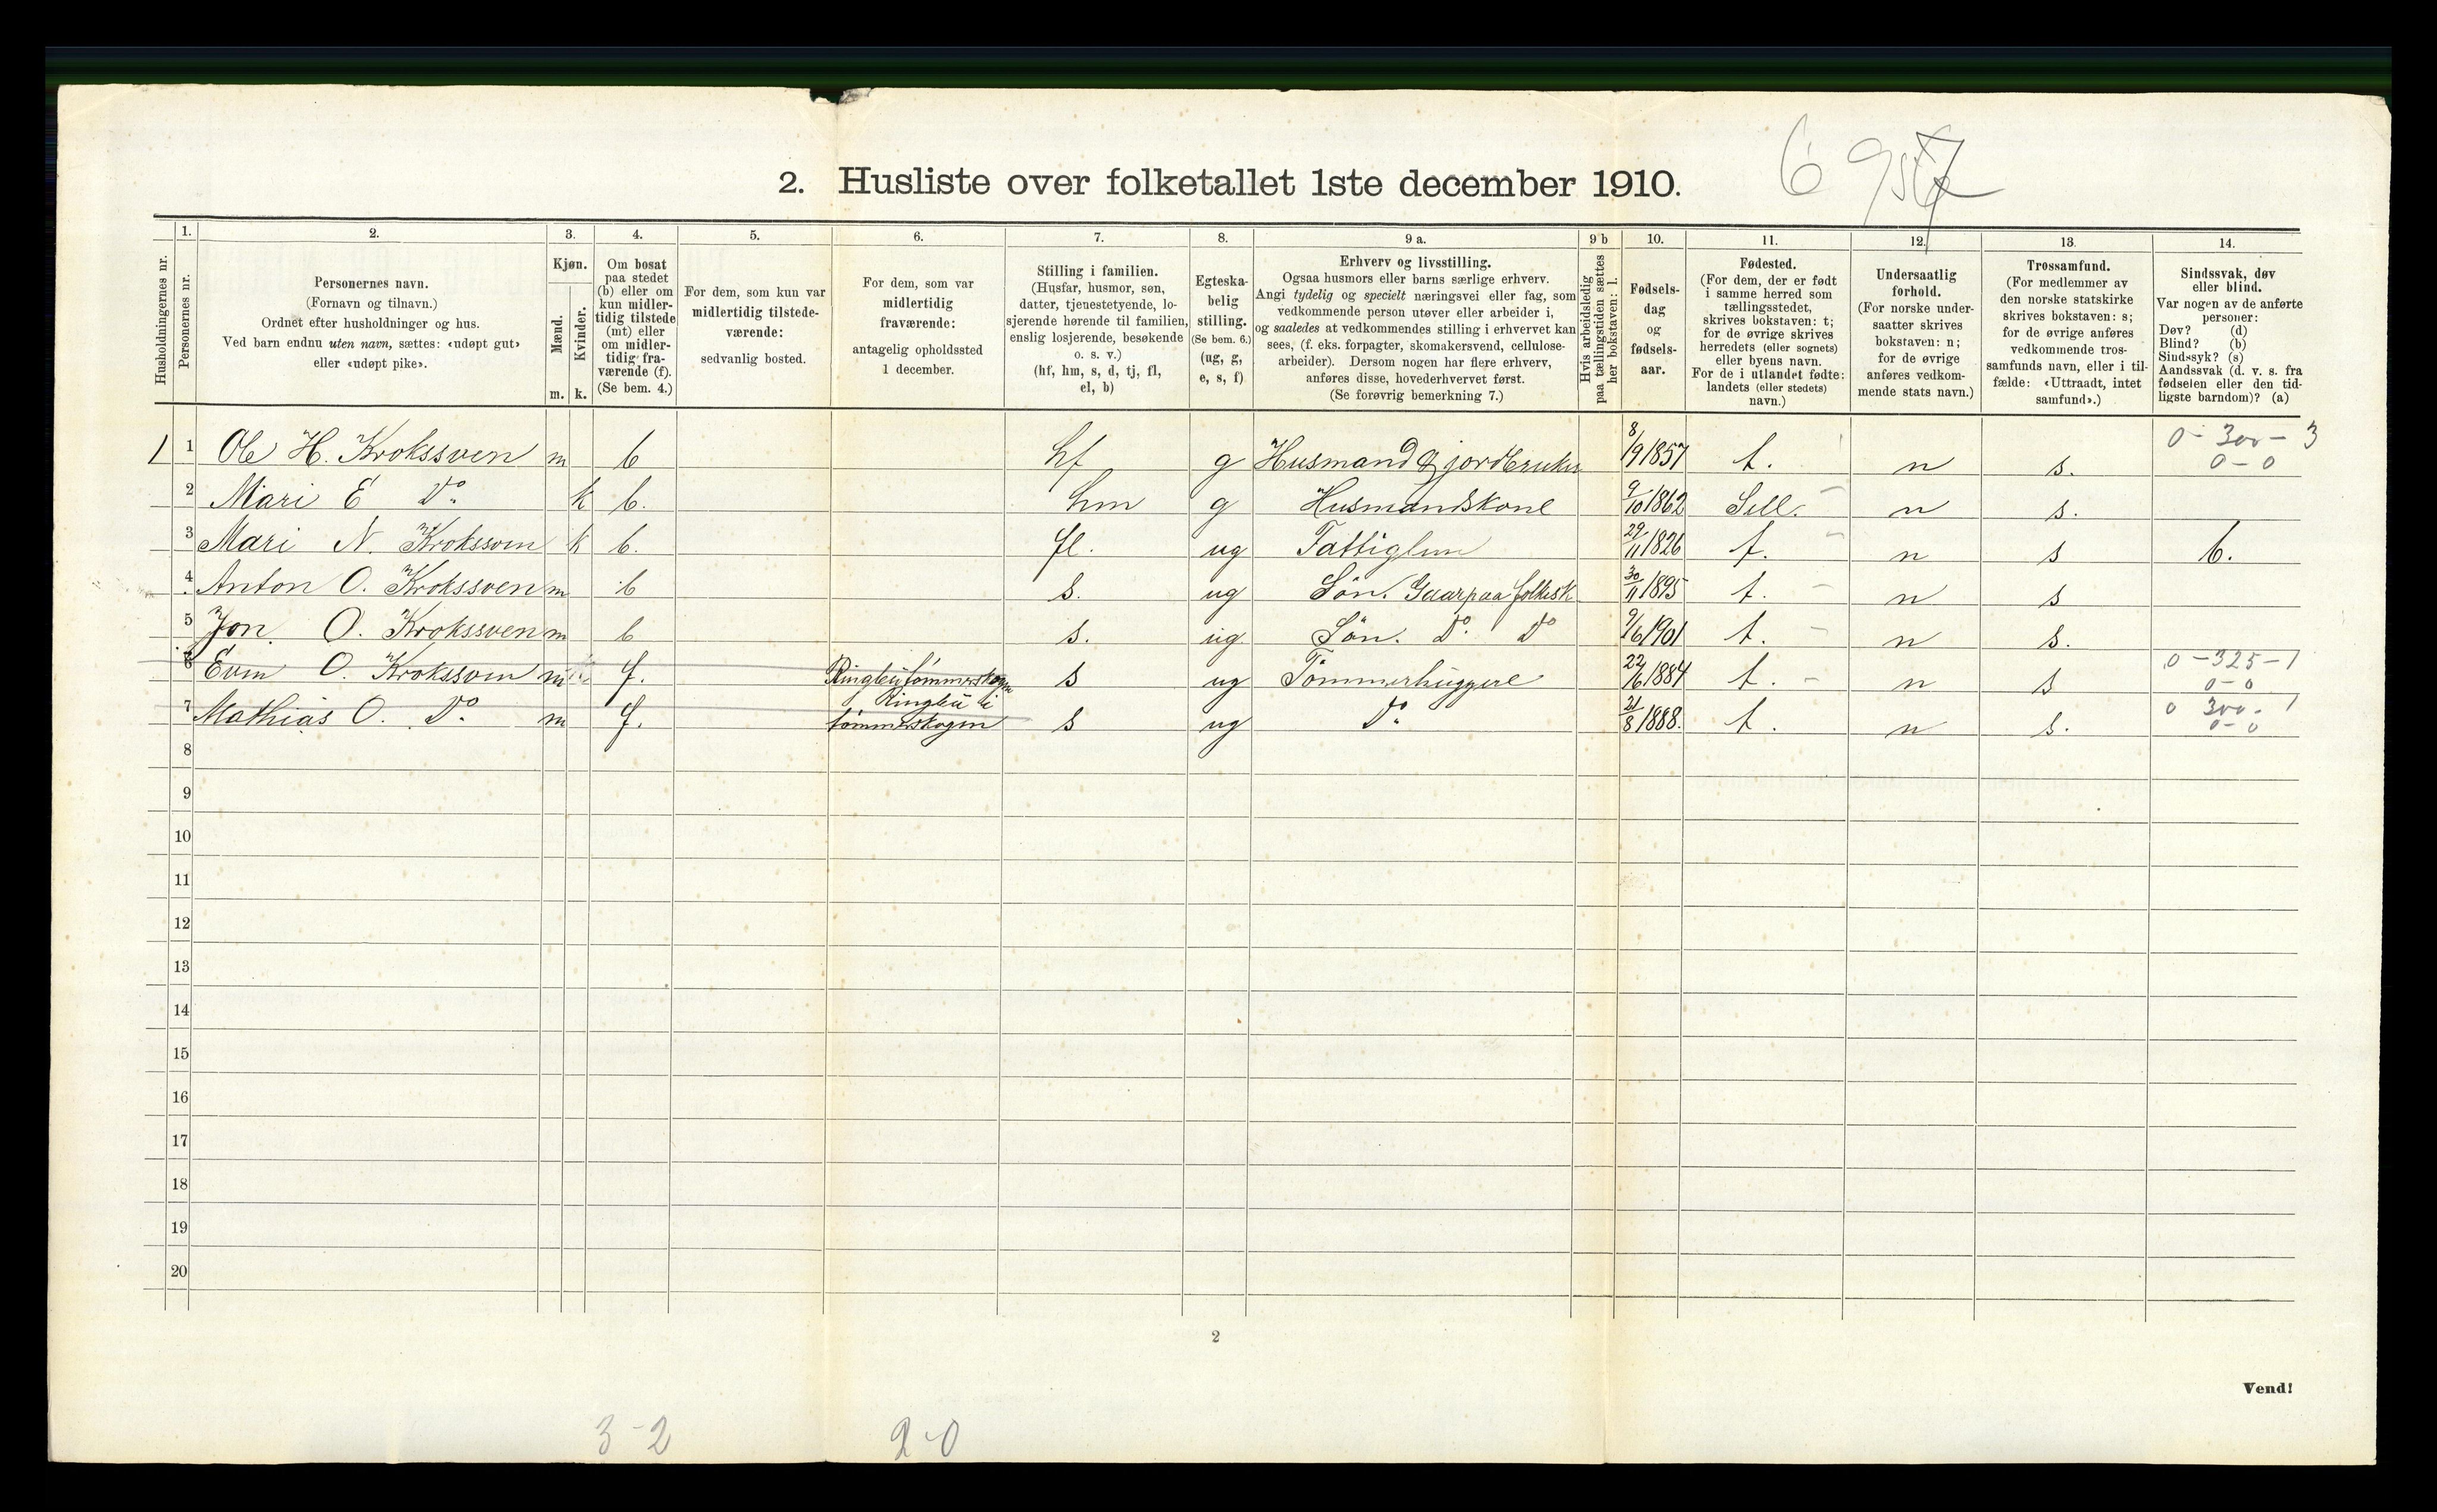 2. Husliste over folketallet 1ste december 1910.
6
1. 2. 3. 4. 5. 6. 7. 8. 9 a. 9 b 10. 11. 12. 13. 14.
Husholdningernes nr.
Personernes nr.
Personernes navn.
(Fornavn og tilnavn.)
Ordnet efter husholdninger og hus.
Ved barn endnu uten navn, sættes: «udøpt gut»
eller «udøpt pike».
Kjøn.
Mænd.
Kvinder.
m. k.
Om bosat
paa stedet
(b) eller om
kun midler-
tidig tilstede
(mt) eller
om midler-
tidig fra-
værende (f).
(Se bem. 4.)
For dem, som kun var
midlertidig tilstede-
værende:
sedvanlig bosted.
For dem, som var
midlertidig
fraværende:
antagelig opholdssted
1 december.
Stilling i familien.
(Husfar, husmor, søn,
datter, tjenestetyende, lo-
sjerende hørende til familien,
enslig losjerende, besøkende
o. s. v.)
(hf, hm, s, d, tj, fl,
el, b)
Egteska-
belig
stilling.
(Se bem. 6.)
(ug, g,
e, s, f)
Erhverv og livsstilling.
Ogsaa husmors eller barns særlige erhverv.
Angi tydelig og specielt næringsvei eller fag, som
vedkommende person utøver eller arbeider i,
og saaledes at vedkommendes stilling i erhvervet kan
sees, (f. eks. forpagter, skomakersvend, cellulose-
arbeider). Dersom nogen har flere erhverv,
anføres disse, hovederhvervet først.
(Se forøvrig bemerkning 7.)
Hvis arbeidsledig
paa tællingstiden sættes
her bokstaven: l.
Fødsels-
dag
og
fødsels-
aar.
Fødested.
(For dem, der er født
i samme herred som
tællingsstedet,
skrives bokstaven: t;
for de øvrige skrives
herredets (eller sognets)
eller byens navn.
For de i utlandet fødte:
landets (eller stedets)
navn.)
Undersaatlig
forhold.
(For norske under-
saatter skrives
bokstaven: n;
for de øvrige
anføres vedkom-
mende stats navn.)
Trossamfund.
(For medlemmer av
den norske statskirke
skrives bokstaven: s;
for de øvrige anføres
vedkommende tros-
samfunds navn, eller i til-
fælde: «Uttraadt, intet
samfund».)
Sindssvak, døv
eller blind.
Var nogen av de anførte
personer:
Døv? (d)
Blind? (b)
Sindssyk? (s)
Aandssvak (d. v. s. fra
fødselen eller den tid-
ligste barndom)? (a)
1 1 Ole H. Krokssven m b hf g Husmand & jordbruker 8/9 1857 t. n s. 0-300-3 0-0
2 Mari E Do k b. hm g Husmandskone 9/10 1862 Sell. n s.
3 Mari N. Krokssven k b. fl. ug Fattiglem 29/11 1826 t. n s b.
4 Anton O. Krokssven m b s. ug Søn. Gaar paa folkesk 30/11 1895 t. n s
5 Jon O. Krokssven m b s. ug Søn. Do Do 9/6 1901 t. n s.
6 Even O. Krokssven m f. Ringebu i tømmerskogen s ug Tømmerhuggere 22/6 1884 t. n s 0-325-1 0-0
7 Mathias O. Do m f. Ringebu i tømmerskogen s ug Do 21/8 1888. t. n s. 0 300-1 0-0
8
9
10
11
12
13
14
15
16
17
18
19
20
2
Vend!
3-2 2-0